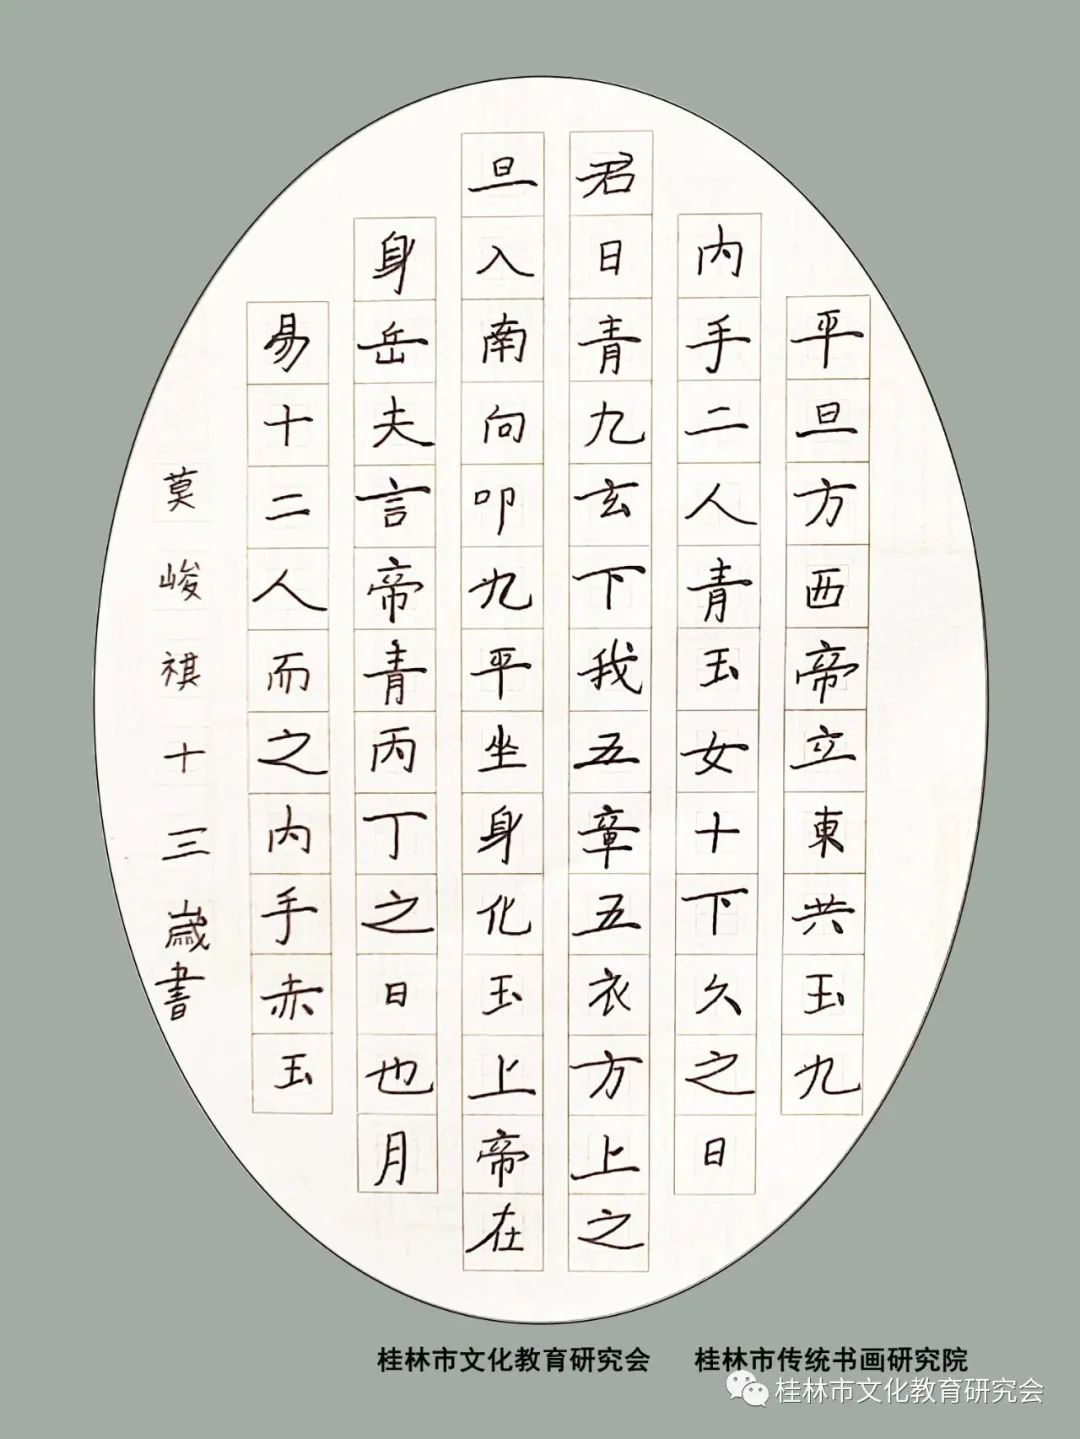 平旦方西帝立東共玉九
内手二人青玉女十下久之日
君日青九玄下我五章五衣方上之
旦入南向叩九平坐身化玉上帝在
身岳夫言帝青丙丁之日也月
易十二人而之内手赤玉
莫峻祺十三歲書
桂林市文化教育研究会 桂林市传统书画研究院
桂林市文化教育研究会